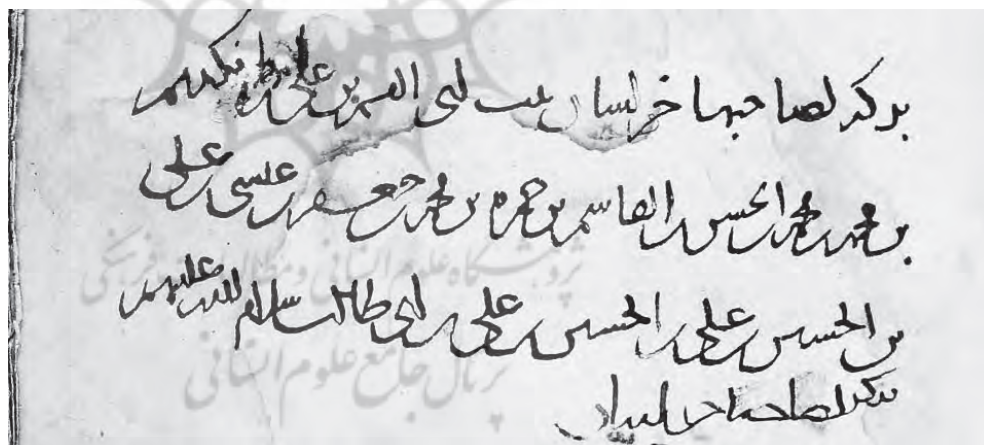 بركة لصاحبها خراسان بنت ابي القسم بن علي بن
بن محمد بن محمد بن الحسن بن القاسم بن حمزه بن محمد بن جعفر بن عيسى بن علي
بن الحسين بن علي بن الحسين بن علي بن ابي طالب سلام الله عليهم
بركة لصاحبها خراسان
پژوهشگاه علوم انسانی و مطالعات فرهنگی
پرتال جامع علوم انسانی